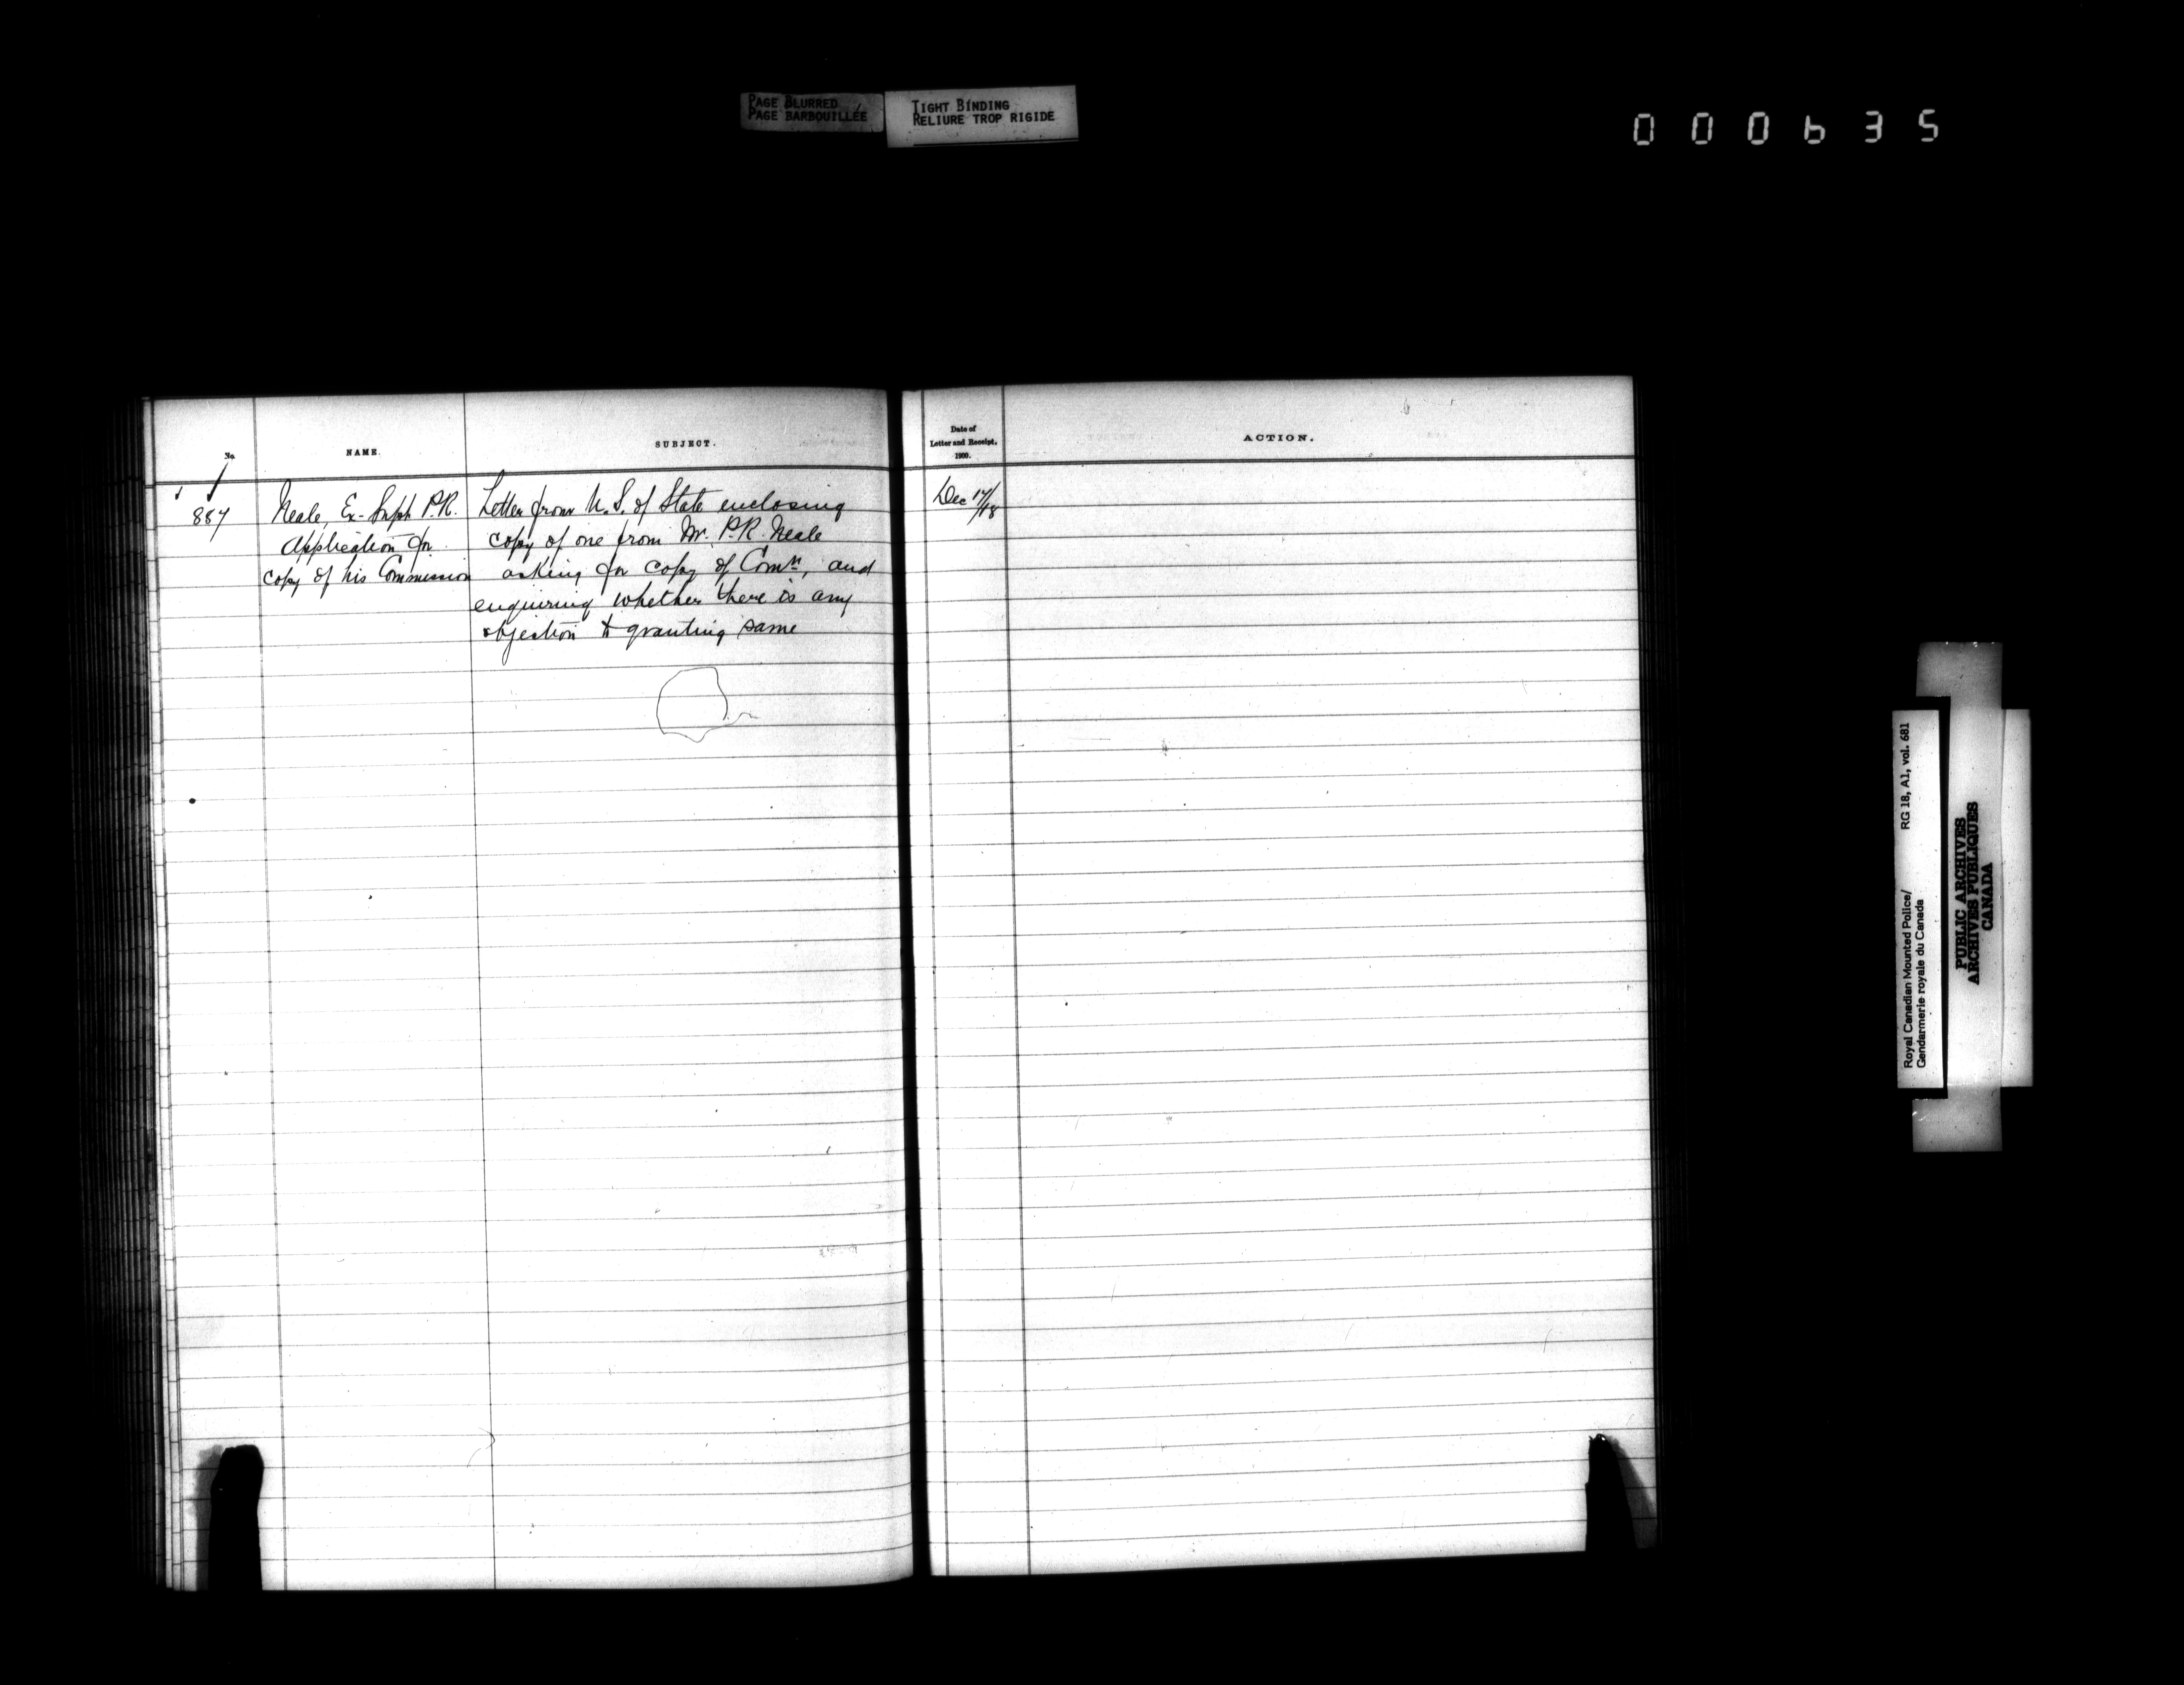 PAGE BLURRED
PAGE BARBOUILLÉE
TIGHT BINDING
RELIURE TROP RIGIDE
000635
No.
NAME.
SUBJECT.
887
Neale, Ex-Supt P.R.
Application for
copy of his Commission
Letter from U.S. of State enclosing
copy of one from Mr. P.R. Neale
asking for copy of Comn, and
enquiring whether there is any
objection to granting same
Date of
Letter and Receipt.
1900.
ACTION.
Dec 17/18
Royal Canadian Mounted Police/ RG 18, A1, vol. 681
Gendarmerie royale du Canada
PUBLIC ARCHIVES
ARCHIVES PUBLIQUES
CANADA